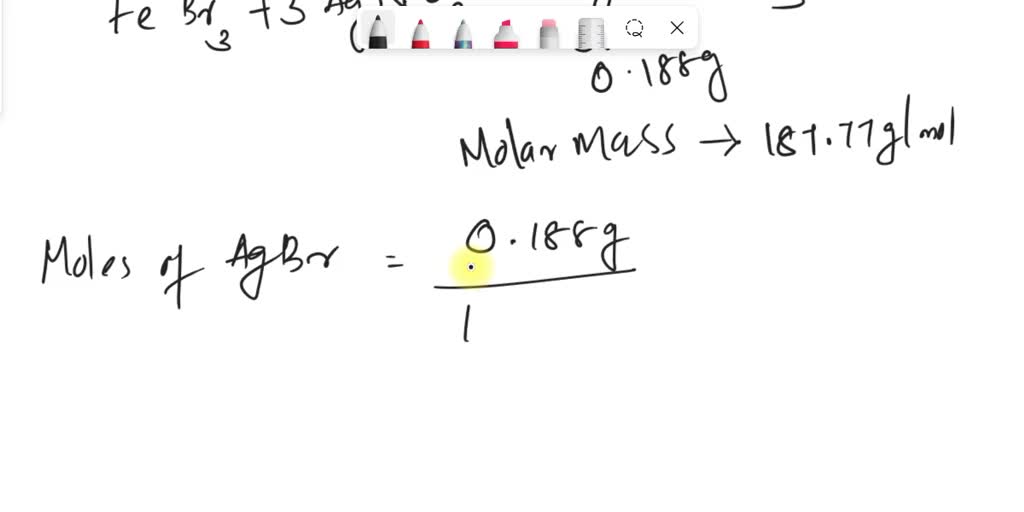 Fe Br3 + 3 Ag
0.188g
Molar Mass → 187.77g/mol
Moles of AgBr = 0.188g
1